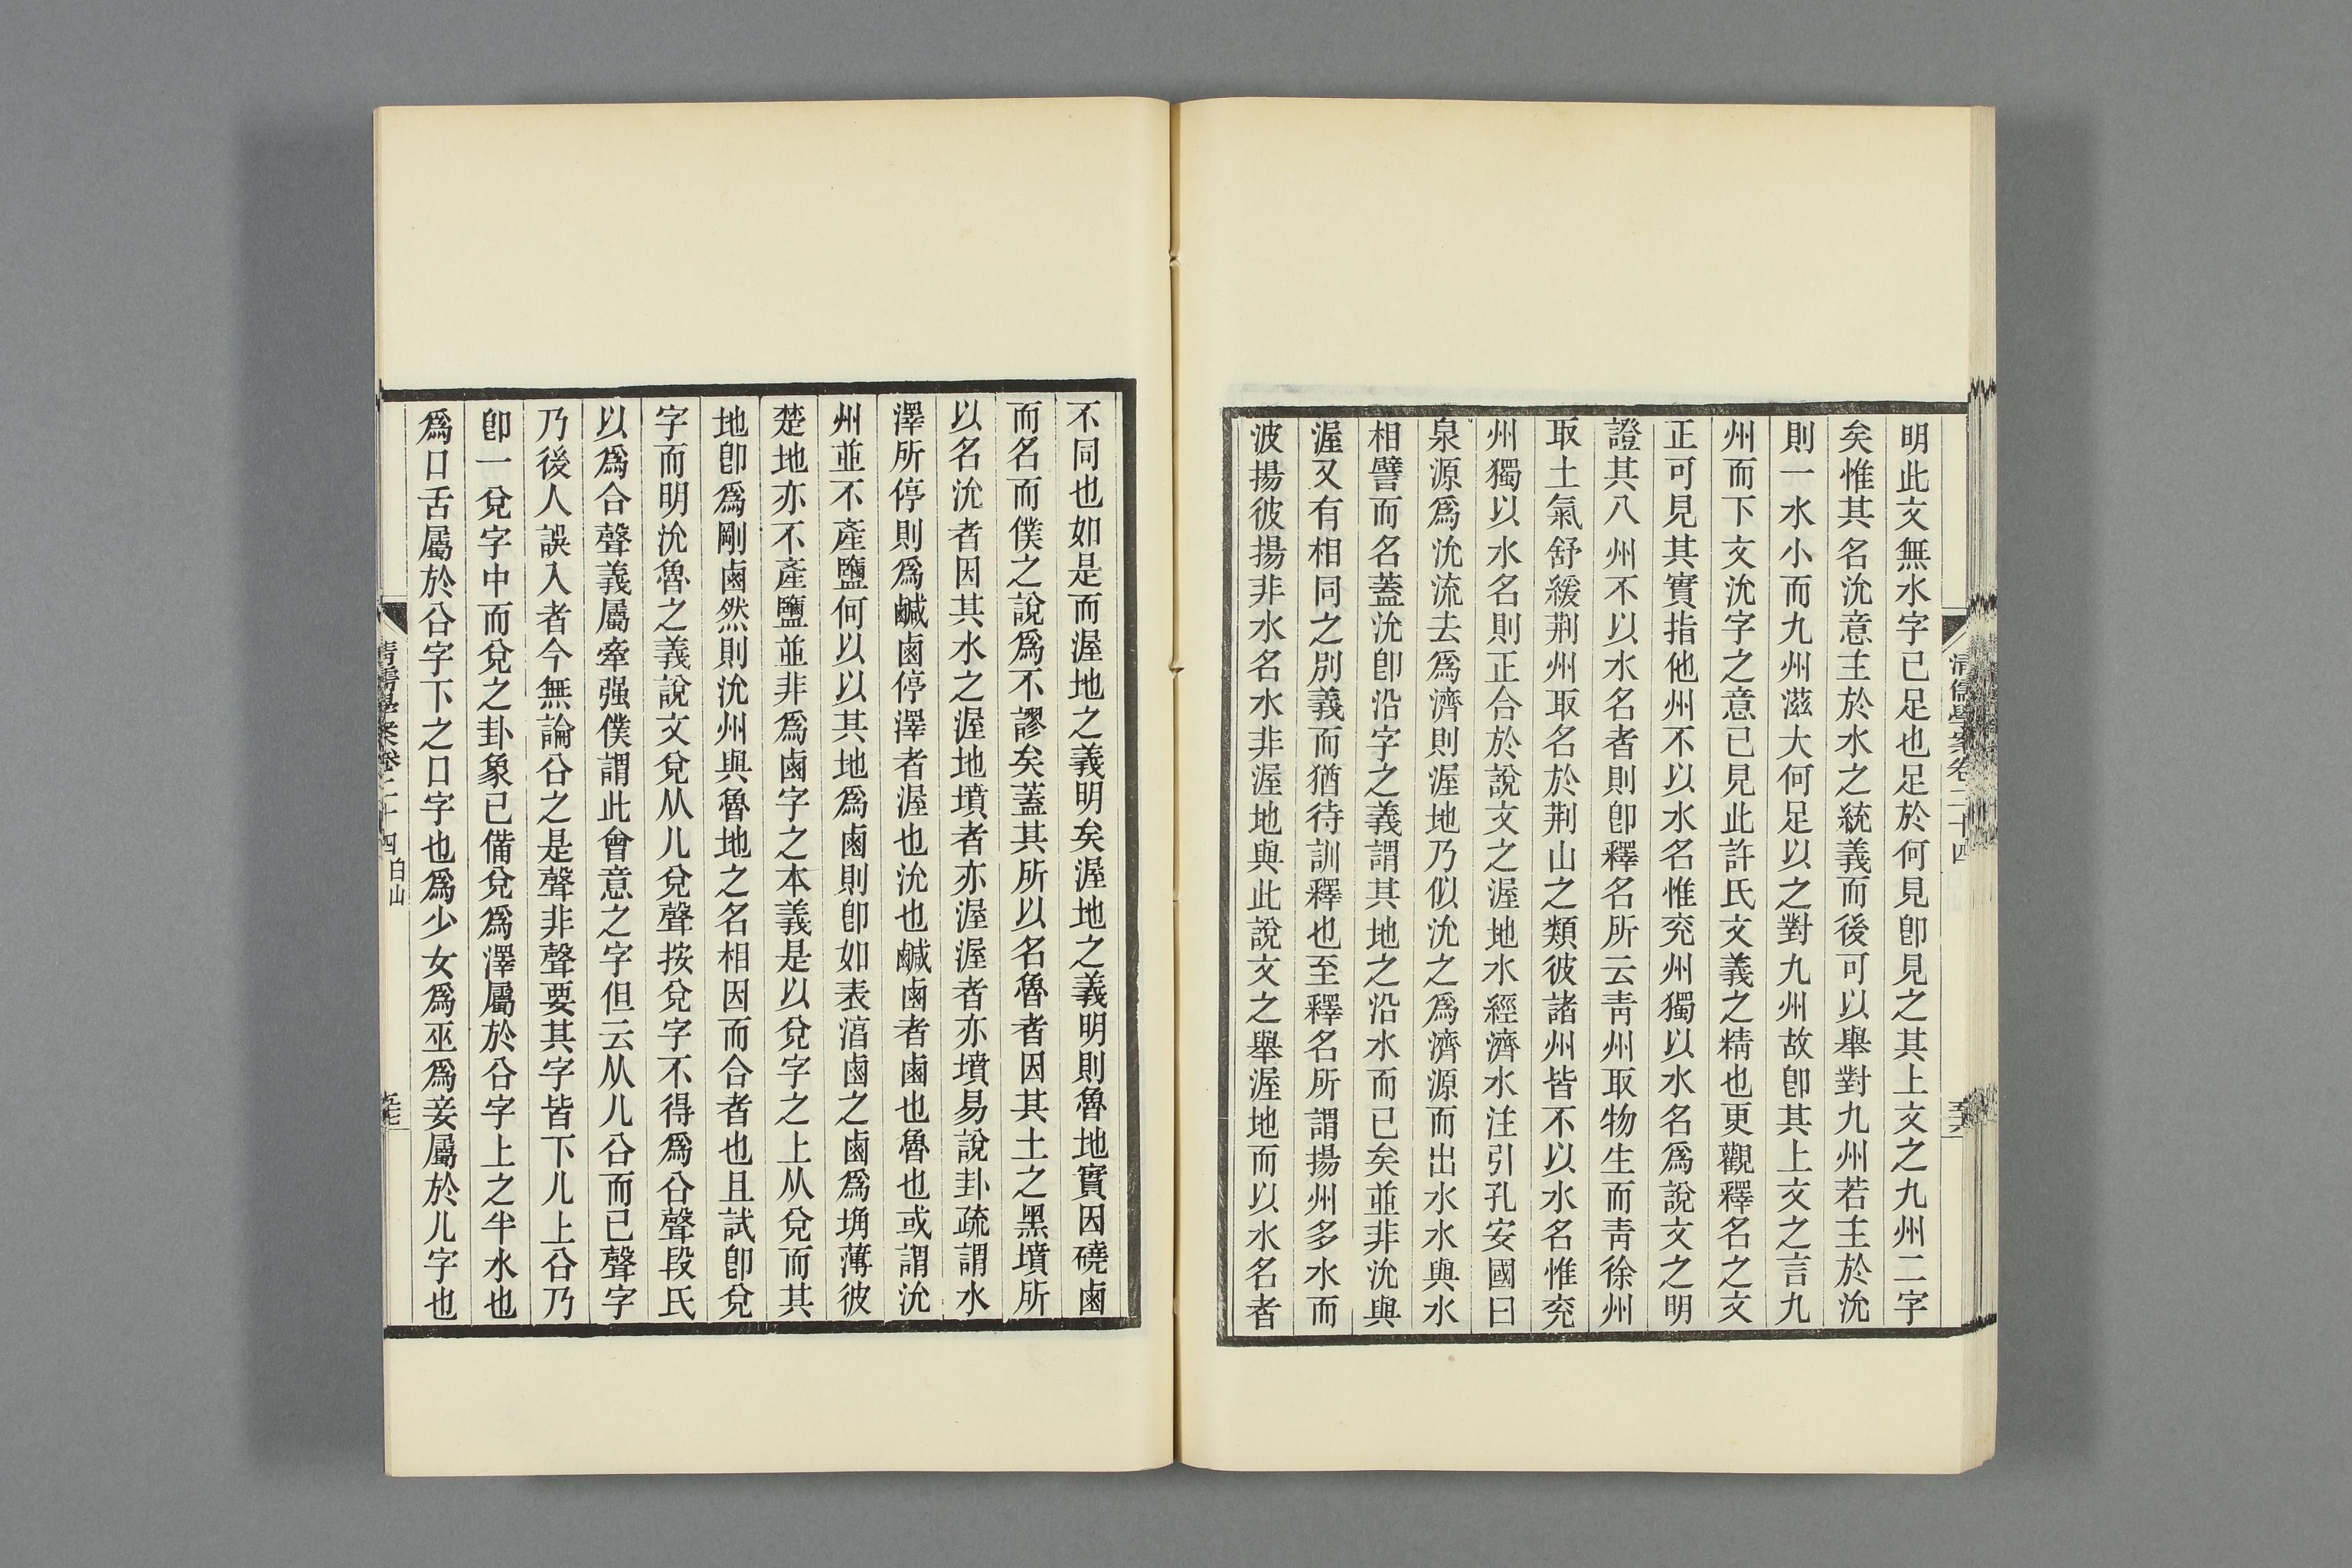 清儒學案卷二十四
明此文無水字已足也足於何見卽見之其上文之九州二字
矣惟其名沇意主於水之統義而後可以舉對九州若主於沇
則一水小而九州滋大何足以之對九州故卽其上文之言九
州而下文沇字之意已見此許氏文義之精也更觀釋名之文
正可見其實指他州不以水名惟兖州獨以水名爲說文之明
證其八州不以水名者則卽釋名所云靑州取物生而靑徐州
取土氣舒緩荆州取名於荆山之類彼諸州皆不以水名惟兖
州獨以水名則正合於說文之渥地水經濟水注引孔安國曰
泉源爲沇流去爲濟則渥地乃似沇之爲濟源而出水水與水
相譬而名蓋沇卽沿字之義謂其地之沿水而已矣並非沇與
渥又有相同之別義而猶待訓釋也至釋名所謂揚州多水而
波揚彼揚非水名水非渥地與此說文之舉渥地而以水名者
不同也如是而渥地之義明矣渥地之義明則魯地實因磽鹵
而名而僕之說爲不謬矣蓋其所以名魯者因其土之黑墳所
以名沇者因其水之渥地墳者亦渥渥者亦墳易說卦疏謂水
澤所停則爲鹹鹵停澤者渥也沇也鹹鹵者鹵也魯也或謂沇
州並不產鹽何以以其地爲鹵則卽如表㵝鹵之鹵爲埆薄彼
楚地亦不產鹽並非爲鹵字之本義是以兌字之上从兌而其
地卽爲剛鹵然則沇州與魯地之名相因而合者也且試卽兌
字而明沇魯之義說文兌从儿兌聲按兌字不得爲㕣聲段氏
以爲合聲義屬牽强僕謂此會意之字但云从儿㕣而已聲字
乃後人誤入者今無論㕣之是聲非聲要其字皆下儿上㕣乃
卽一兌字中而兌之卦象已備兌爲澤屬於㕣字上之半水也
爲口舌屬於㕣字下之口字也爲少女爲巫爲妾屬於儿字也
清儒學案卷二十四 白山